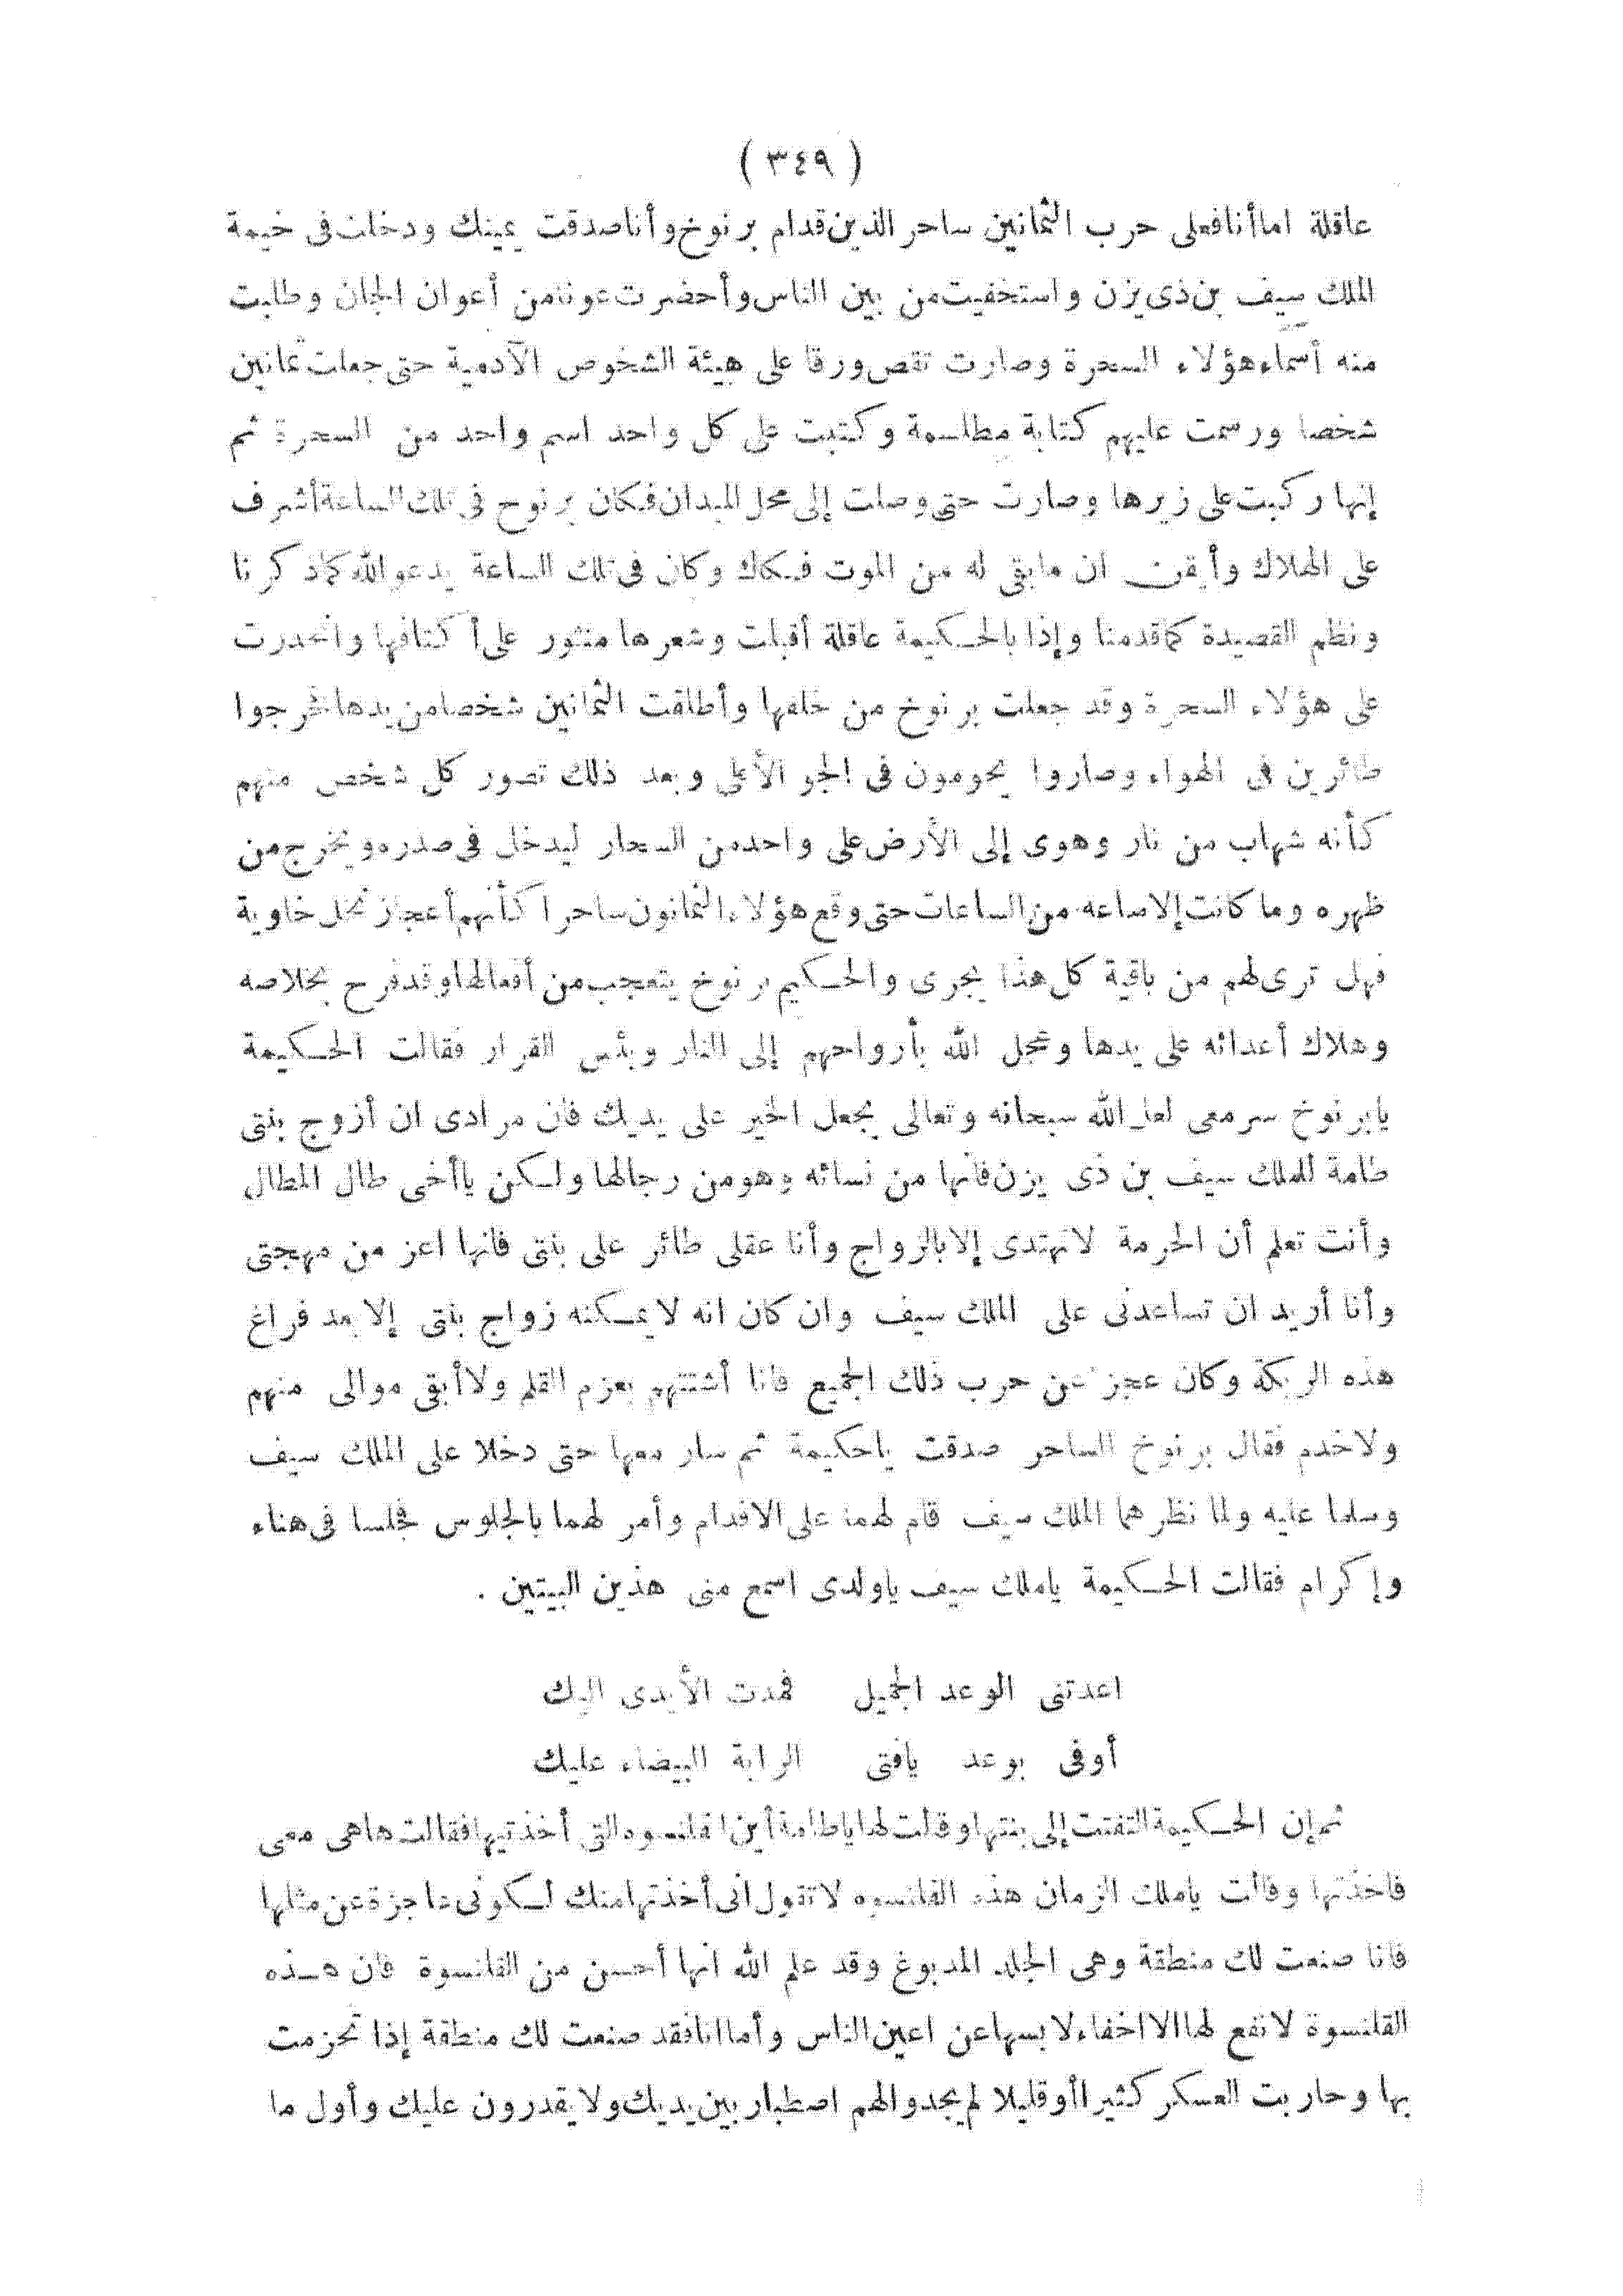 ( ٣٤٩ )
عاقلة اما أنا فعلى حرب الثمانين ساحر الذين قدام برنوخ وأنا صدقت يمينك ودخلت فى خيمة
الملك سيف بن ذى يزن واستخفيت من بين الناس وأحضرت عونا من أعوان الجان وطلبت
منه أسماء هؤلاء السحرة وصارت تقص ورقا على هيئة الشخوص الآدمية حتى جعلت ثمانين
شخصا ورسمت عليهم كتابة مطلسمة وكتبت على كل واحد اسم واحد من السحرة ثم
إنها ركبت على زيرها وصارت حتى وصلت إلى محل الميدان فكان برنوح فى تلك الساعة أشرف
على الهلاك وأيقن ان مابقى له من الموت فكاك وكان فى تلك الساعة يدعو الله كما ذكرنا
ونظم القصيدة كما قدمنا وإذا بالحكيمة عاقلة أقبلت وشعرها منثور على أكتافها وانحدرت
على هؤلاء السحرة وقد جعلت برنوخ من خلفها وأطلقت الثمانين شخصا من يدها فخرجوا
طائرين فى الهواء وصاروا يحومون فى الجو الأعلى وبعد ذلك تصور كل شخص منهم
كأنه شهاب من نار وهوى إلى الأرض على واحد من السحار ليدخل فى صدره ويخرج من
ظهره وما كانت إلا ساعه من الساعات حتى وقع هؤلاء الثمانون ساحرا كأنهم أعجاز نخل خاوية
فهل ترى لهم من باقية كل هذا يجرى والحكيم برنوخ يتعجب من أفعالها وقد فرح بخلاصه
وهلاك أعدائه على يدها وعجل الله بأرواحهم إلى النار وبئس القرار فقالت الحكيمة
يابرنوخ سر معى لعل الله سبحانه وتعالى يجعل الخير على يديك فان مرادى ان أزوج بنتى
طامة للملك سيف بن ذى يزن فانها من نسائه وهو من رجالها ولكن ياأخى طال المطال
وأنت تعلم أن الحرمة لا تهتدى إلا بالزواج وأنا عقلى طائر على بنتى فانها اعز من مهجتى
وأنا أريد ان تساعدنى على الملك سيف وان كان انه لا يمكنه زواج بنتى إلا بعد فراغ
هذه الربكة وكان عجز عن حرب ذلك الجميع فانا أشتتهم بعزم القلم ولا أبقى موالى منهم
ولا خدم فقال برنوخ الساحر صدقت ياحكيمة ثم سار معها حتى دخلا على الملك سيف
وسلما عليه ولما نظرهما الملك سيف قام لهما على الاقدام وأمر لهما بالجلوس فجلسا فى هناء
وإكرام فقالت الحكيمة ياملك سيف ياولدى اسمع منى هذين البيتين .
اعدتنى الوعد الجميل فمدت الأيدى اليك
أوفى بوعد يافتى الراية البيضاء عليك
ثم إن الحكيمة التفتت إلى بنتها وقالت لها ياطامة أين القلنسوه التى أخذتيها فقالت هاهى معى
فاخذتها وقالت ياملك الزمان هذه القلنسوه لا تقول انى أخذتها منك لكونى عاجزة عن مثلها
فانا صنعت لك منطقة وهى الجلد المدبوغ وقد علم الله انها أحسن من القلنسوة فان هذه
القلنسوة لا نفع لها الا اخفاء لابسها عن اعين الناس وأما انا فقد صنعت لك منطقة إذا تحزمت
بها وحاربت العسكر كثيرا أو قليلا لم يجدوا لهم اصطبار بين يديك ولا يقدرون عليك وأول ما